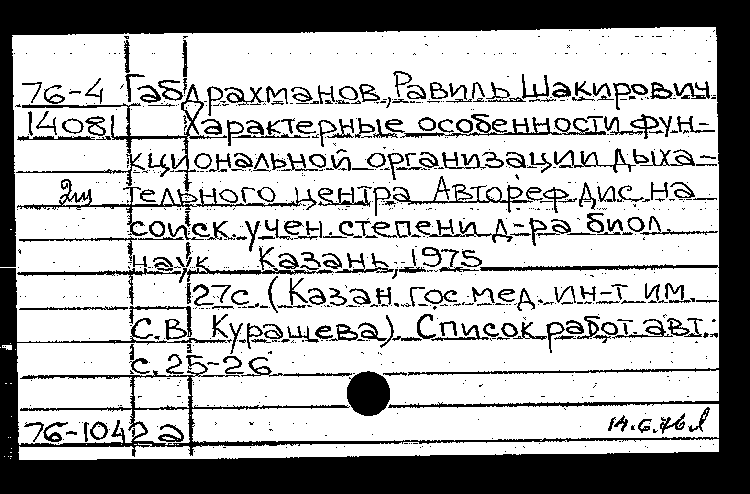 76-4 Габдрахманов, Равиль Шакирович
14081 Характерные особенности фун-
кциональной организации дыха-
тельного центра Автореф дис. на
соиск. учен. степени д-ра биол.
наук Казань, 1975
27с. (Казан. гос мед. ин-т им.
С.В. Куращева). Список работ. авт.:
с. 25-26
76-1042а 14.6.76